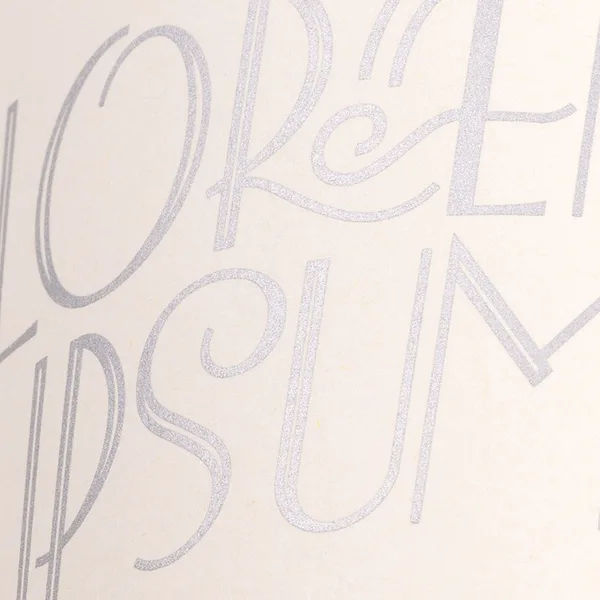 LOREM
IPSUM